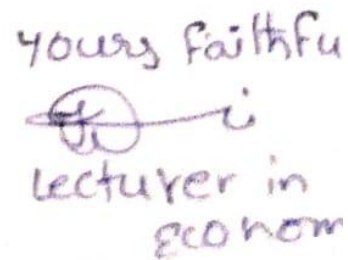 Yours faithfu
Lecturer in
Econom